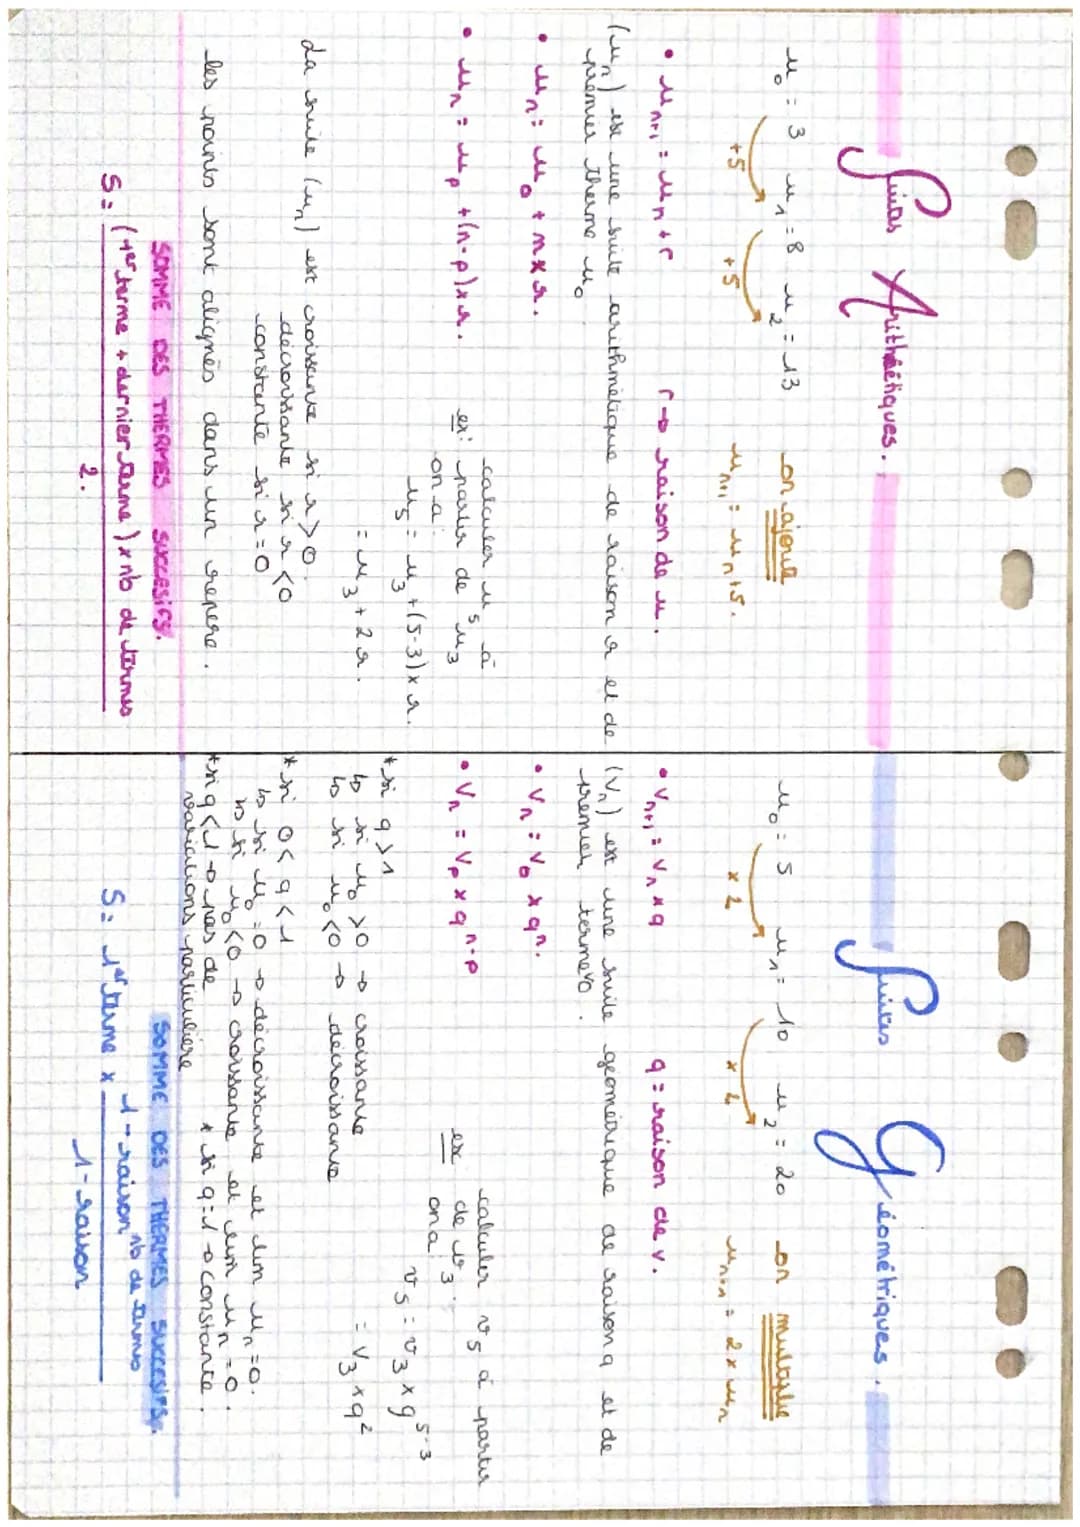 Suites Arithmétiques.
u₀ = 3 u₁ = 8 u₂ = 13 on ajoute
+5 +5 uₙ₊₁ = uₙ+5.
• uₙ₊₁ = uₙ + r r → raison de u.
(uₙ) est une suite arithmétique de raison r et de
premier therme u₀
• uₙ = u₀ + n x r.
• uₙ = uₚ + (n-p) x r. ex: calculer u₅ à
partir de u₃
on a:
u₅ = u₃ + (5-3) x r.
= u₃ + 2 r.
La suite (uₙ) est croissante si r > 0
décroissante si r < 0
constante si r = 0
les points sont alignés dans un repère.
SOMME DES THERMES SUCCESIFS.
S = (1er terme + dernier terme) x nb de termes
2.
Suites Géométriques.
u₀ = 5 u₁ = 10 u₂ = 20 on multiplie
x 2 x 2 uₙ₊₁ = 2 x uₙ
• Vₙ₊₁ = Vₙ x q q = raison de v.
(Vₙ) est une suite géométrique de raison q et de
premier terme v0.
• Vₙ = V₀ x qⁿ.
• Vₙ = Vₚ x qⁿ⁻ᵖ
ex calculer v₅ à partir
de v₃.
on a
v₅ = v₃ x q⁵⁻³
= V₃ x q²
* si q > 1
↳ si u₀ > 0 → croissante
↳ si u₀ < 0 → décroissante
* si 0 < q < 1
↳ si u₀ = 0 → décroissante et lim uₙ = 0.
↳ si u₀ < 0 → croissante et lim uₙ = 0.
* si q < 1 → pas de * si q = 1 → constante.
variations particulière
SOMME DES THERMES SUCCESIFS.
S = 1er terme x 1 - raison nb de termes
1 - raison